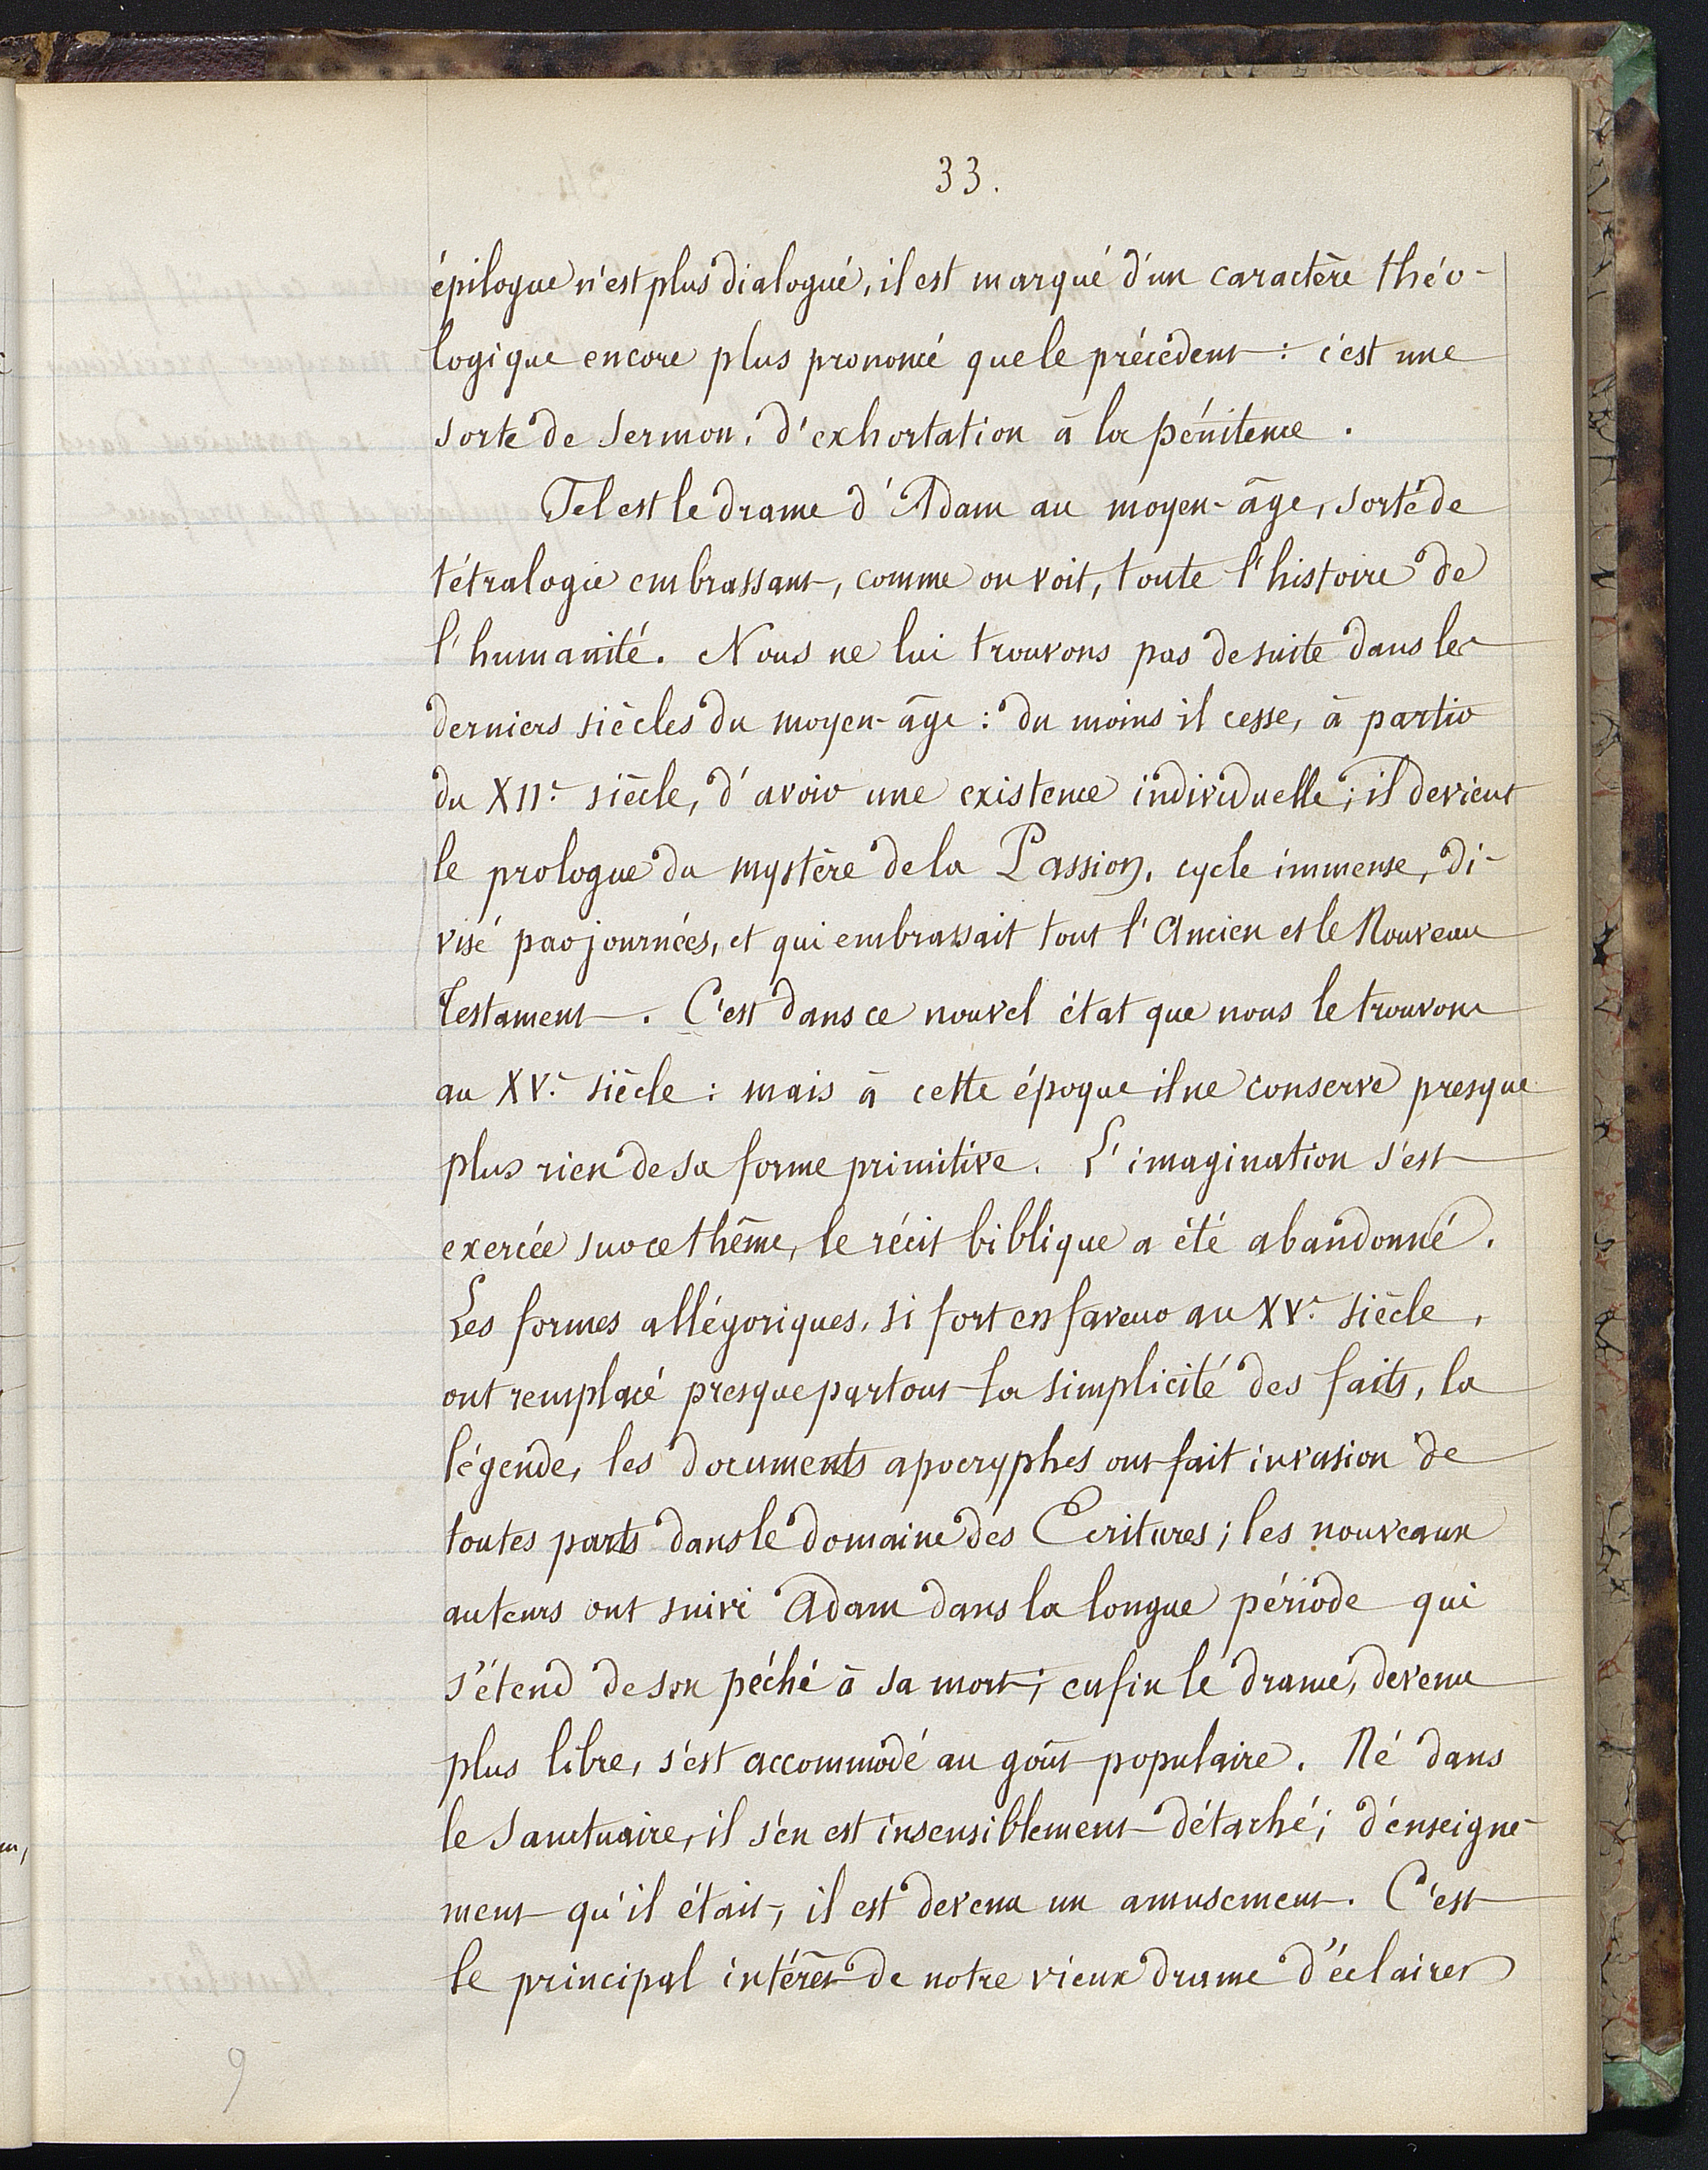 33.
épilogue n'est plus dialogué, il est marqué d'un caractère théo-
logique encore plus prononcé que le précédent : c'est une
sorte de sermon, d'exhortation à la pénitence.
Tel est le drame d'Adam au moyen-âge, sorte de
tétralogie embrassant, comme on voit, toute l'histoire de
l'humanité. Nous ne lui trouvons pas de suite dans les
derniers siècles du moyen-âge : du moins il cesse, à partir
du XIIe siècle, d'avoir une existence individuelle ; il devient
le prologue du mystère de la Passion, cycle immense, di-
visé par journées, et qui embrassait tout l'Ancien et le Nouveau
Testament. C'est dans ce nouvel état que nous le trouvons
au XVe siècle : mais à cette époque il ne conserve presque
plus rien de sa forme primitive. L'imagination s'est
exercée sur ce thème, le récit biblique a été abandonné.
Les formes allégoriques, si fort en faveur au XVe siècle,
ont remplacé presque partout la simplicité des faits, la
légende, les documents apocryphes ont fait invasion de
toutes parts dans le domaine des Ecritures ; les nouveaux
auteurs ont suivi Adam dans la longue période qui
s'étend de son péché à sa mort ; enfin le drame, devenu
plus libre, s'est accommodé au goût populaire. Né dans
le sanctuaire, il s'en est insensiblement détaché ; d'enseigne-
ment qu'il était, il est devenu un amusement. C'est
le principal intérêt de notre vieux drame d'éclairer
9